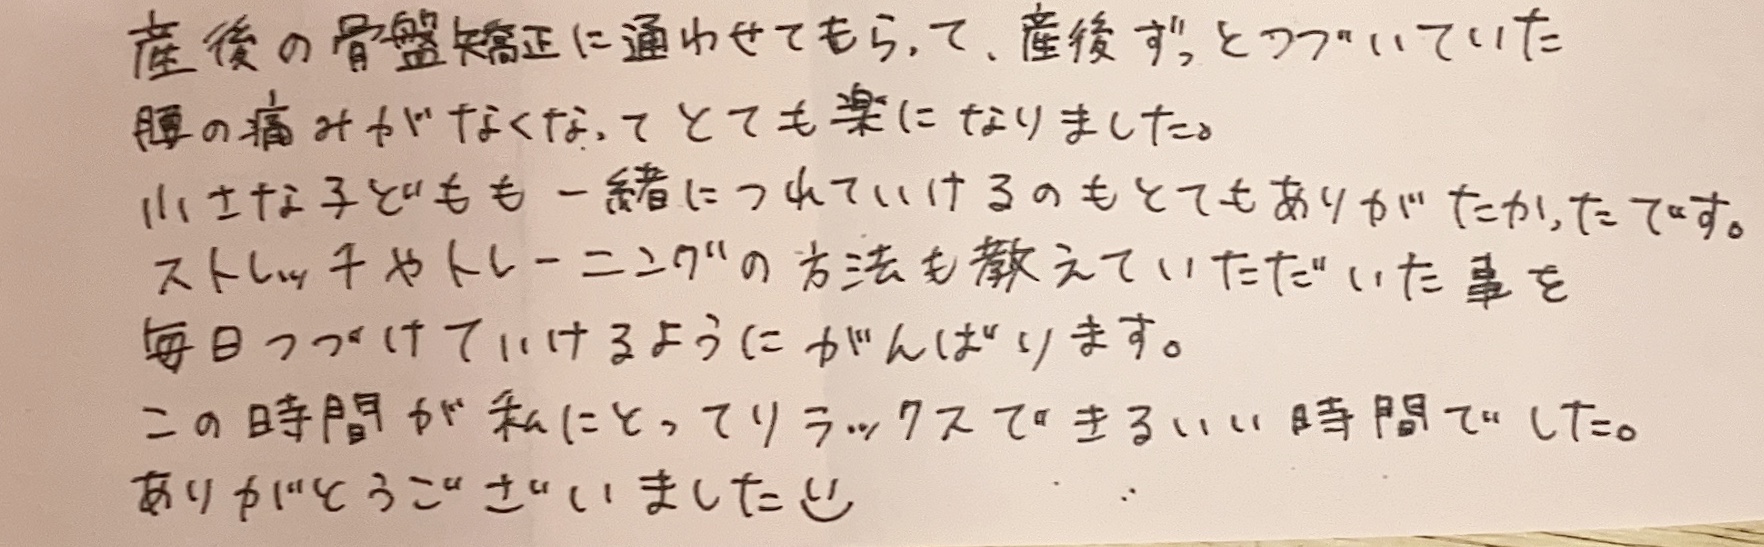 産後の骨盤矯正に通わせてもらって、産後ずっとつづいていた
腰の痛みがなくなってとても楽になりました。
小さな子どもも一緒につれていけるのもとてもありがたかったです。
ストレッチやトレーニングの方法も教えていただいた事を
毎日つづけていけるようにがんばります。
この時間が私にとってリラックスできるいい時間でした。
ありがとうございました